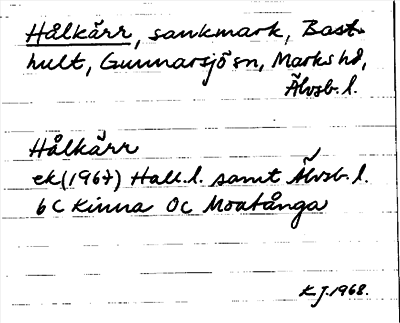 Hålkärr, sankmark, Bast-
hult, Gunnarsjö sn, Marks hd,
Älvsb. l.
Hålkärr
ek (1967) Hall. l. samt Älvsb. l.
6C Kinna 0c Moatånga
K J. 1968.